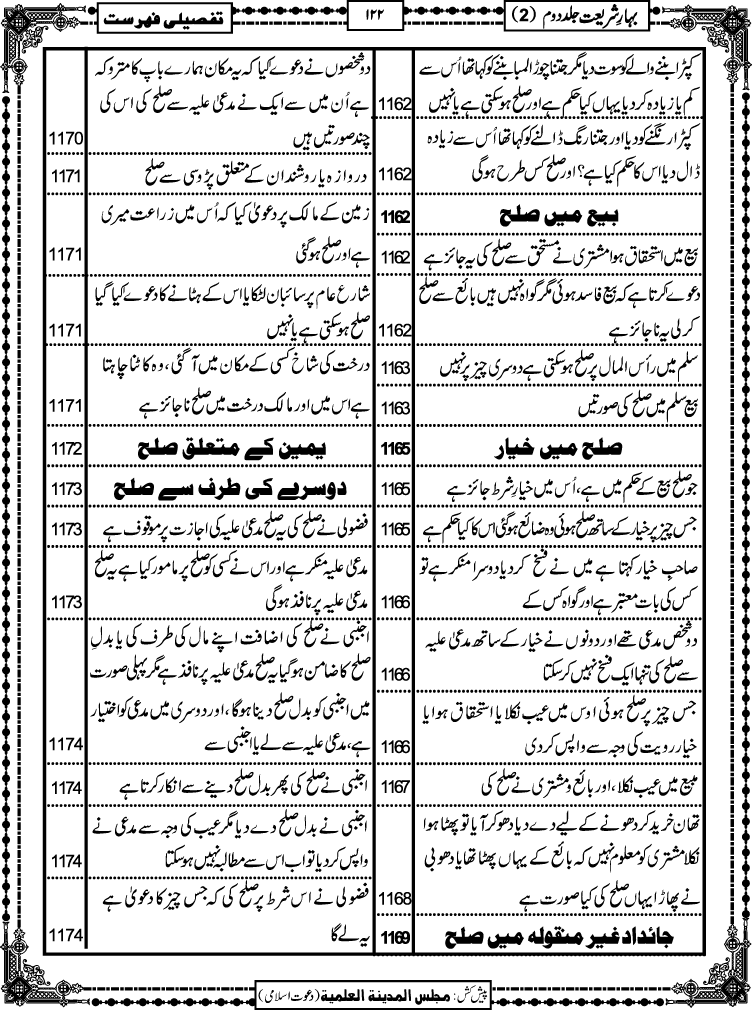 بہارِ شریعت جلد دوم (2)
۱۲۲
تفصیلی فہرست
کپڑا بننے والے کو سوت دیا مگر جتنا چوڑا لمبا بننے کو کہا تھا اُس سے
کم یا زیادہ کر دیا یہاں کیا حکم ہے اور صلح ہو سکتی ہے یا نہیں 1162
کپڑا رنگنے کو دیا اور جتنا رنگ ڈالنے کو کہا تھا اُس سے زیادہ
ڈال دیا اس کا حکم کیا ہے؟ اور صلح کس طرح ہوگی 1162
بیع میں صلح 1162
بیع میں استحقاق ہوا مشتری نے مستحق سے صلح کی یہ جائز ہے 1162
دعوے کرتا ہے کہ بیع فاسد ہوئی مگر گواہ نہیں ہیں بائع سے صلح
کر لی یہ ناجائز ہے 1162
سلم میں رأس المال پر صلح ہو سکتی ہے دوسری چیز پر نہیں 1163
بیع سلم میں صلح کی صورتیں 1163
صلح میں خیار 1165
جو صلح بیع کے حکم میں ہے، اُس میں خیارِ شرط جائز ہے 1165
جس چیز پر خیار کے ساتھ صلح ہوئی وہ ضائع ہوگئی اس کا کیا حکم ہے 1165
صاحبِ خیار کہتا ہے میں نے فسخ کر دیا دوسرا منکر ہے تو
کس کی بات معتبر ہے اور گواہ کس کے 1166
دو شخص مدعی تھے اور دونوں نے خیار کے ساتھ مدعیٰ علیہ
سے صلح کی تنہا ایک فسخ نہیں کر سکتا 1166
جس چیز پر صلح ہوئی اوس میں عیب نکلا یا استحقاق ہوا یا
خیار رویت کی وجہ سے واپس کر دی 1166
مبیع میں عیب نکلا، اور بائع و مشتری نے صلح کی 1167
تھان خرید کر دھونے کے لیے دے دیا دھو کر آیا تو پھٹا ہوا
نکلا مشتری کو معلوم نہیں کہ بائع کے یہاں پھٹا تھا یا دھوبی
نے پھاڑا یہاں صلح کی کیا صورت ہے 1168
جائداد غیر منقولہ میں صلح 1169
دو شخصوں نے دعوے کیا کہ یہ مکان ہمارے باپ کا متروکہ
ہے اُن میں سے ایک نے مدعیٰ علیہ سے صلح کی اس کی
چند صورتیں ہیں 1170
دروازہ یا روشندان کے متعلق پڑوسی سے صلح 1171
زمین کے مالک پر دعویٰ کیا کہ اُس میں زراعت میری
ہے اور صلح ہوگئی 1171
شارع عام پر سائبان لٹکایا اس کے ہٹانے کا دعوے کیا گیا
صلح ہو سکتی ہے یا نہیں 1171
درخت کی شاخ کسی کے مکان میں آ گئی، وہ کاٹنا چاہتا
ہے اس میں اور مالک درخت میں صلح ناجائز ہے 1171
یمین کے متعلق صلح 1172
دوسرے کی طرف سے صلح 1173
فضولی نے صلح کی یہ صلح مدعیٰ علیہ کی اجازت پر موقوف ہے 1173
مدعیٰ علیہ منکر ہے اور اس نے کسی کو صلح پر مامور کیا ہے یہ صلح
مدعیٰ علیہ پر نافذ ہوگی 1173
اجنبی نے صلح کی اضافت اپنے مال کی طرف کی یا بدلِ
صلح کا ضامن ہو گیا یہ صلح مدعیٰ علیہ پر نافذ ہے مگر پہلی صورت
میں اجنبی کو بدلِ صلح دینا ہوگا، اور دوسری میں مدعی کو اختیار
ہے، مدعیٰ علیہ سے لے یا اجنبی سے 1174
اجنبی نے صلح کی پھر بدلِ صلح دینے سے انکار کرتا ہے 1174
اجنبی نے بدلِ صلح دے دیا مگر عیب کی وجہ سے مدعی نے
واپس کر دیا تو اب اس سے مطالبہ نہیں ہو سکتا 1174
فضولی نے اس شرط پر صلح کی کہ جس چیز کا دعویٰ ہے
یہ لے گا 1174
پیش کش: مجلس المدینة العلمية (دعوتِ اسلامی)